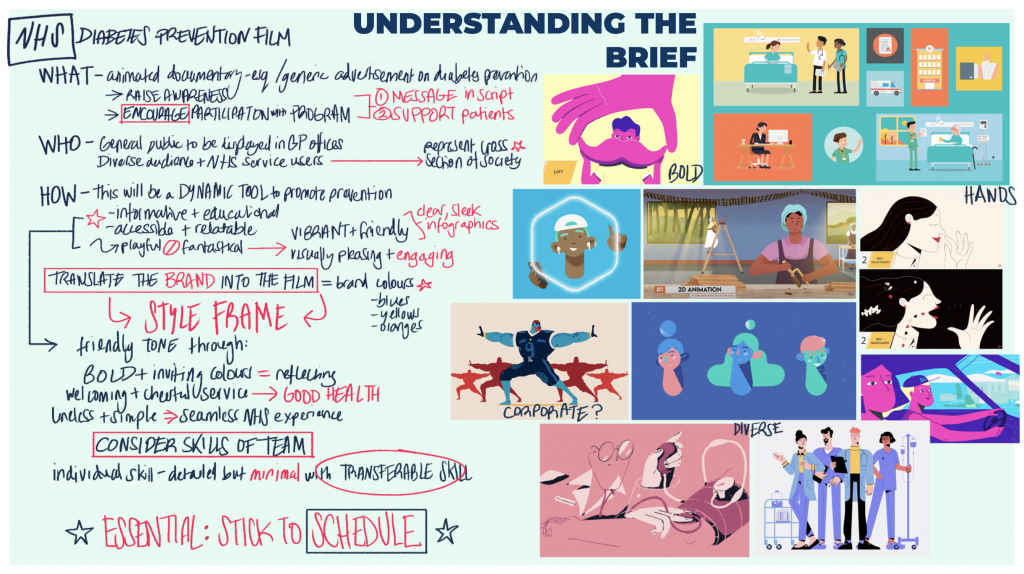 UNDERSTANDING THE
BRIEF
NHS DIABETES PREVENTION FILM
WHAT - animated documentary-esq / generic advertisement on diabetes prevention
→ RAISE AWARENESS
→ ENCOURAGE PARTICIPATION with PROGRAM
① MESSAGE in script
② SUPPORT patients
WHO - General public to be displayed in GP offices
Diverse audience + NHS service users → represent cross
section of society
HOW - this will be a DYNAMIC TOOL to promote prevention
- informative + educational
- accessible + relatable
playful fantastical → VIBRANT + friendly
visually pleasing + engaging
clear, sleek
infographics
TRANSLATE THE BRAND INTO THE FILM = brand colours
- blues
- yellows
- oranges
STYLE FRAME
friendly TONE through:
BOLD + inviting colours = reflecting
welcoming + cheerful service → GOOD HEALTH
Lineless + simple → seamless NHS experience
CONSIDER SKILLS OF TEAM
individual skill - detailed but minimal with TRANSFERABLE SKILL
☆ ESSENTIAL: STICK TO SCHEDULE ☆
LYFT
BOLD
HANDS
#1 2D ANIMATION
2
2
CORPORATE?
9
DIVERSE